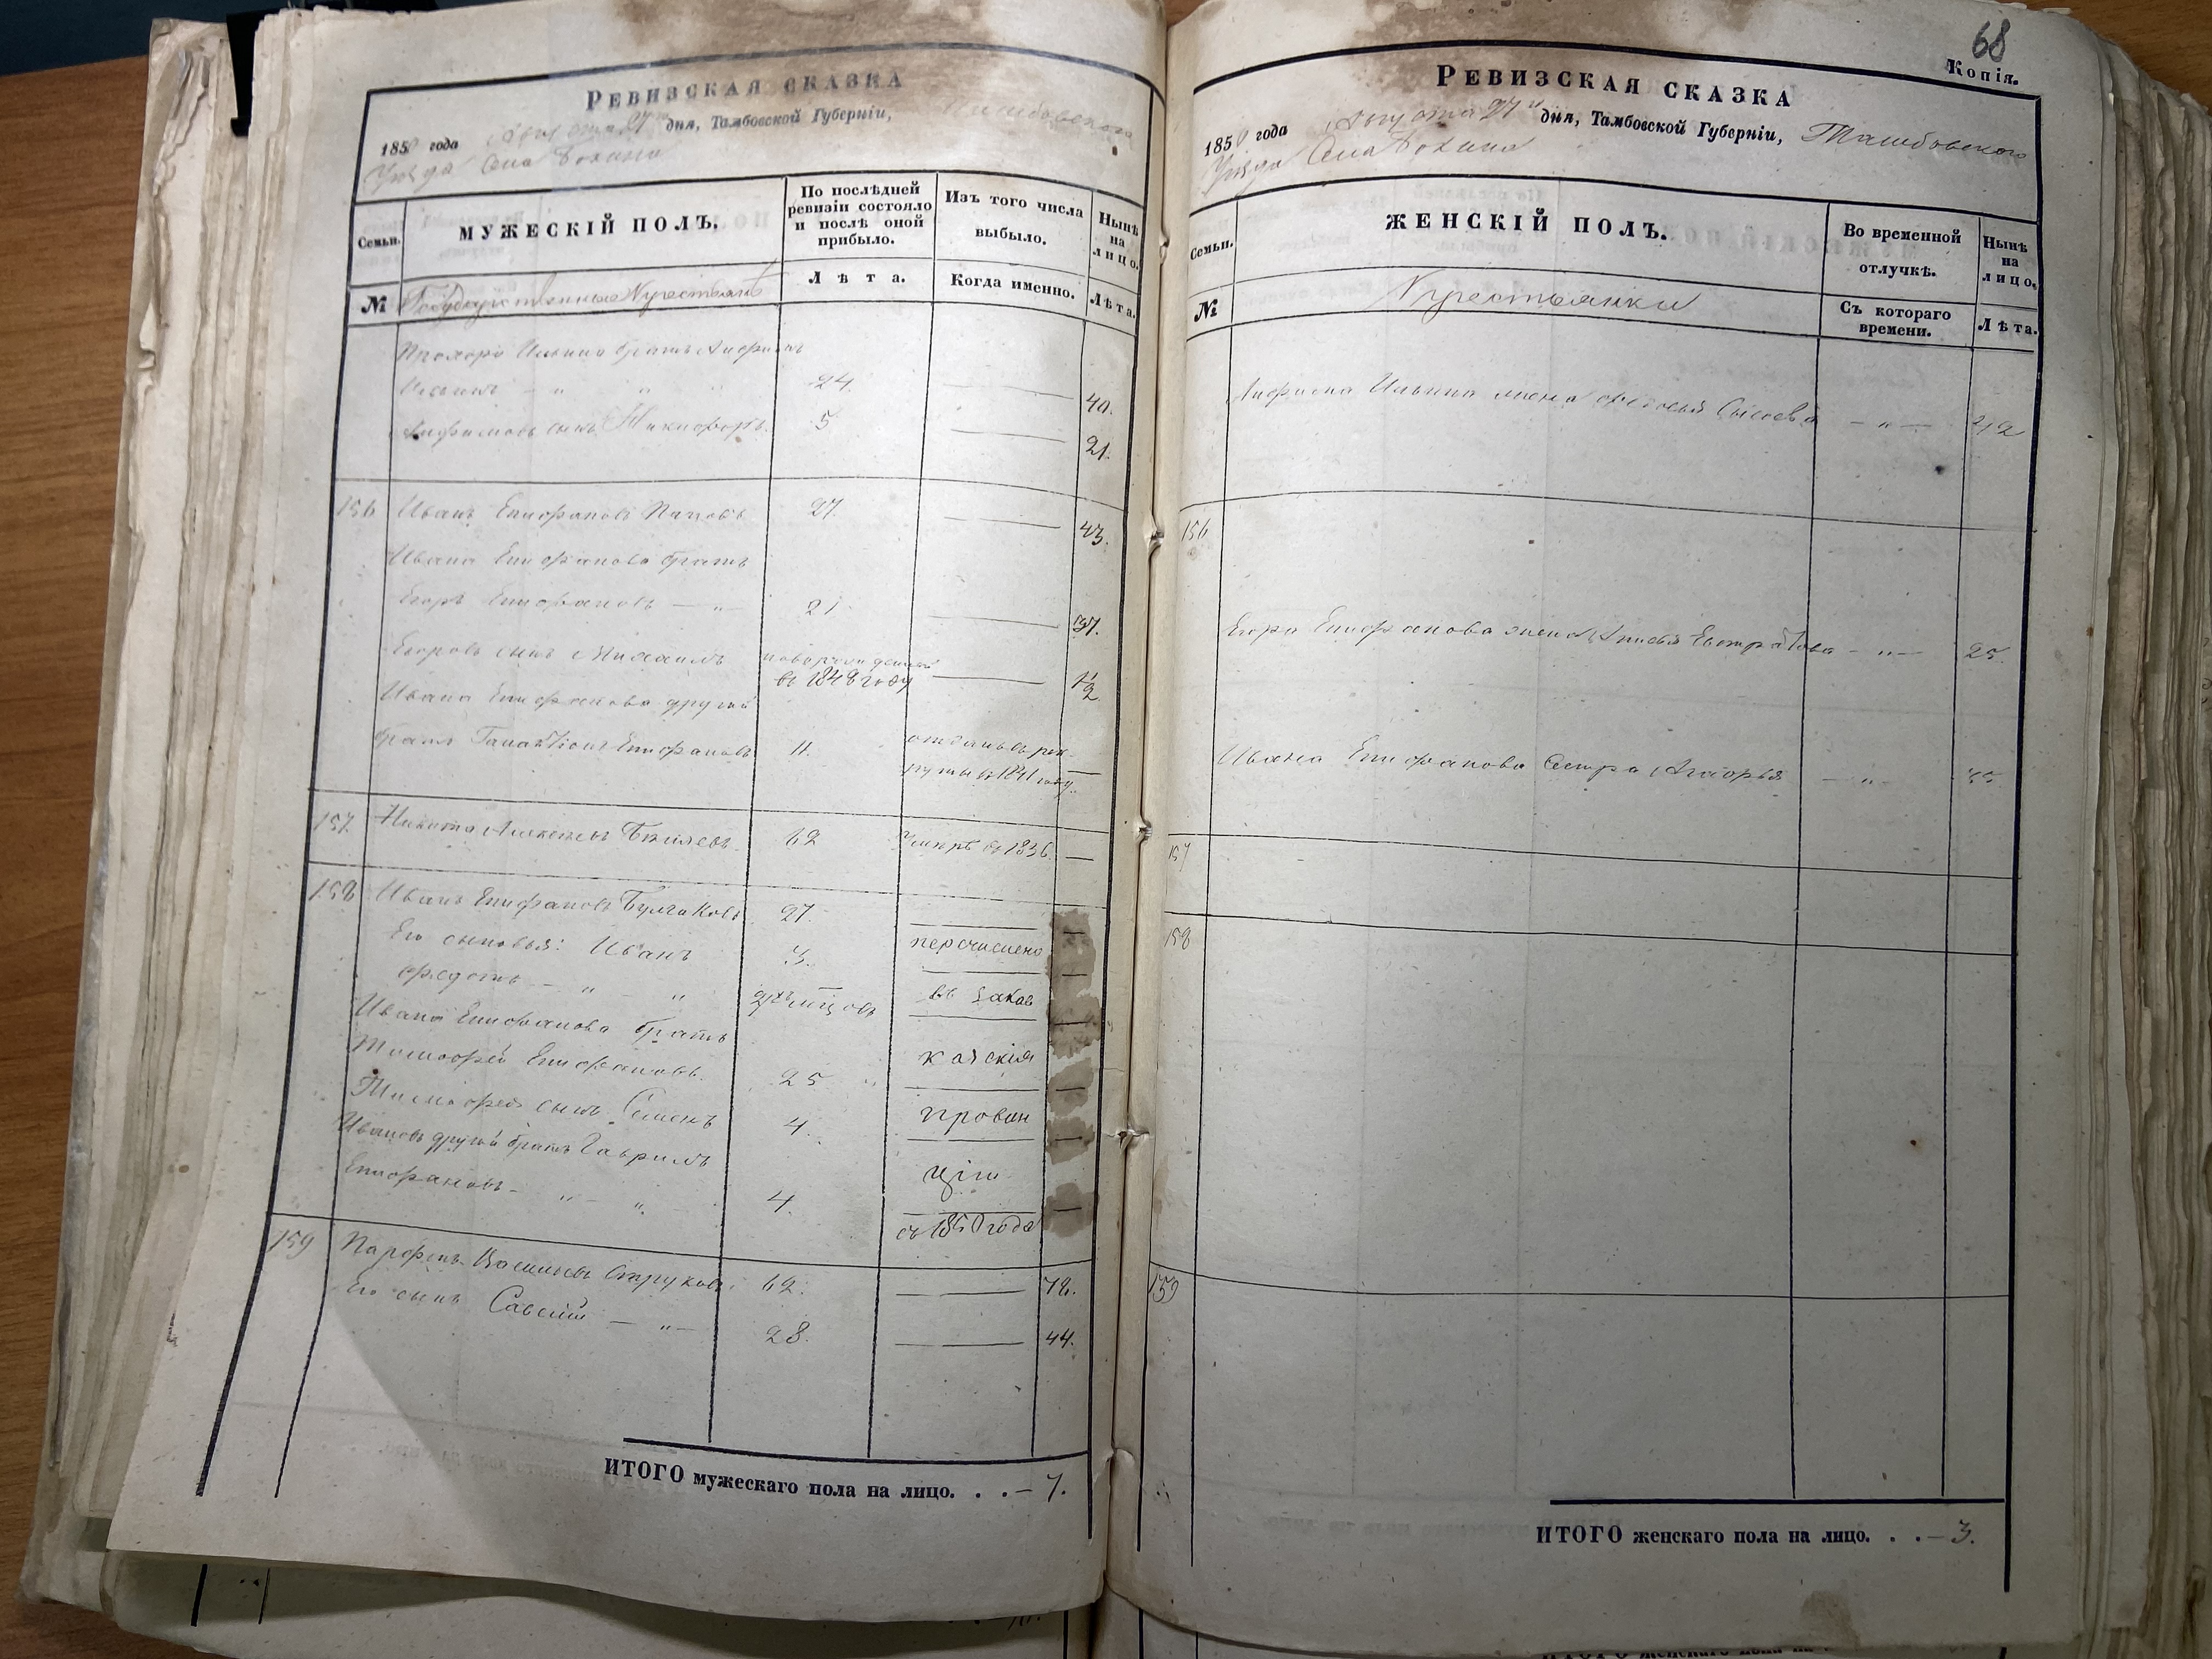 РЕВИЗСКАЯ СКАЗКА
1850 года Августа 27 дня, Тамбовской Губерніи, Тамбовскаго
Уѣзда Села
Семьи.
МУЖЕСКІЙ ПОЛЪ.
По послѣдней ревизіи состояло и послѣ оной прибыло.
Изъ того числа выбыло.
Нынѣ на лицо.
№
Государственные Крестьяне
Лѣта.
Когда именно.
Лѣта.
Прохора Ильина братъ Анфимъ
Ильинъ - " " " 24. — 40.
Анфимовъ сынъ Никифоръ. 5 — 21.
156 Иванъ Епифановъ 27. — 43.
Ивана Епифанова братъ
Егоръ Епифановъ — " — 21 — 37.
Егоровъ сынъ Михаилъ новорожденный — 1/2
въ 1848 году
Ивана Епифанова другой
братъ Епифановъ 11. отданъ въ рек-
руты въ 1841 году. —
157. Никита 62 Умеръ въ 1836. —
158 Иванъ Епифановъ Булгаковъ 27. —
Его сыновья: Иванъ 3. перечислено —
Федотъ - " - " въ Закав —
Ивана Епифанова братъ
Тимофей Епифановъ. 25 " казскія —
Тимофея сынъ Семенъ 4. провин —
Ивановъ другой братъ Гаврилъ
Епифановъ - " - " 4. ціи —
съ 1850 года
159 Парфенъ Васильевъ Струковъ. 62. — 78.
Его сынъ Савелій — " — 28. — 44.
ИТОГО мужескаго пола на лицо. . . — 7.
68
Копія.
РЕВИЗСКАЯ СКАЗКА
1850 года Августа 27 дня, Тамбовской Губерніи, Тамбовскаго
Уѣзда Села
Семьи.
ЖЕНСКІЙ ПОЛЪ.
Во временной отлучкѣ.
Нынѣ на лицо.
№
Крестьянки
Съ котораго времени.
Лѣта.
Ильина жена Федосья Сысоева — " — 42
156
Егора Епифанова жена Евстратова — " — 25.
Ивана Епифанова Сестра — " —
157
158
159
ИТОГО женскаго пола на лицо. . . — 3.